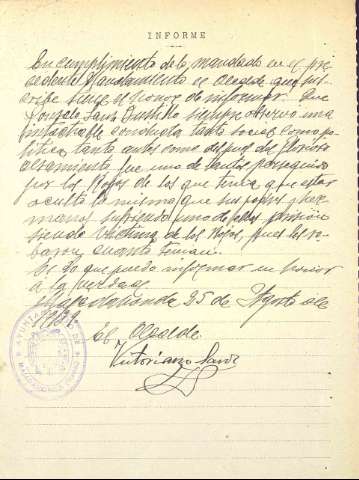 INFORME
En cumplimiento de lo mandado en el pre
cedente Mandamiento el Alcalde que sus
cribe tiene el honor de informar: Que
Gonzalo Sanz siempre observo una
intachable conducta tanto social como po
lítica tanto antes como despues del glorioso
alzamiento fue uno de tantos perseguidos
por los Rojos de los que tenia que estar
oculto lo mismo que sus padres y her
manos sufriendo uno de ellos prisión
siendo victima de los Rojos, pues les ro
baron cuanto tenian.
Es lo que puedo informar en honor
a la verdad.
25 de Agosto de
1939.
El Alcalde
Victoriano Sanz
AYUNTAMIENTO DE